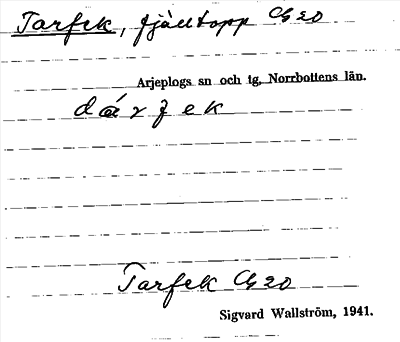 Tarfek, fjälltopp C420
Arjeplogs sn och tg, Norrbottens län.
Tarfek C420
Sigvard Wallström, 1941.